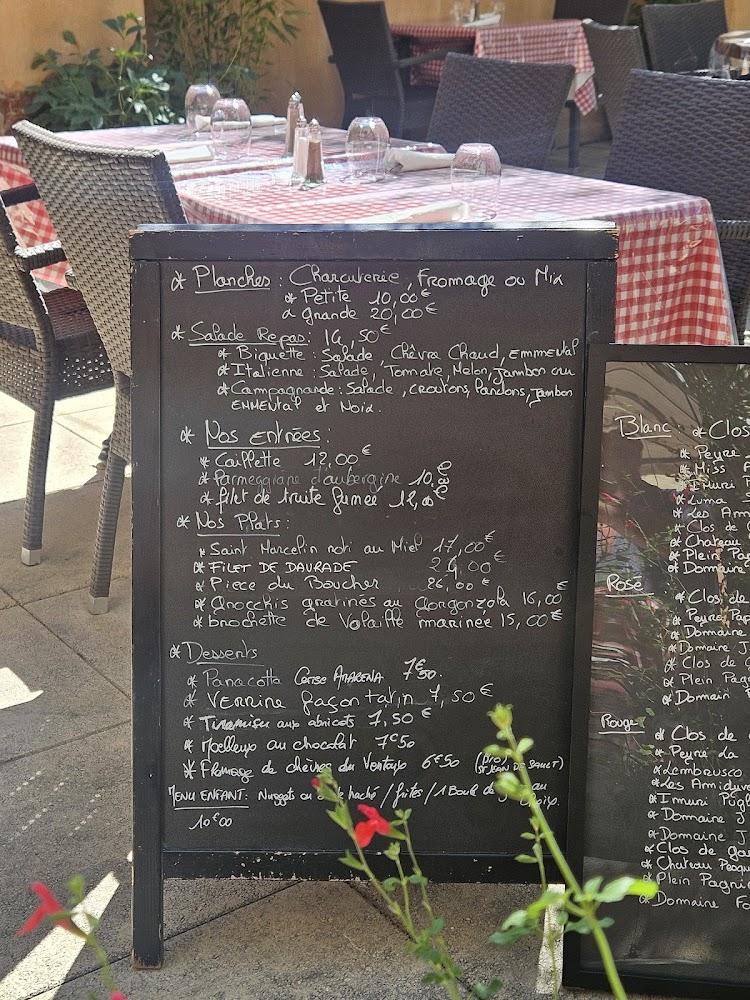 * Planches : Charcuterie, Fromage ou Mix
* Petite 10,00€
* grande 20,00€
* Salade Repas : 14,50€
* Biquette : Salade, Chèvre Chaud, Emmental
* Italienne : Salade, Tomate, Melon, Jambon cru
* Campagnarde : Salade, croutons, Lardons, Jambon
EMMENTAL et Noix.
* Nos entrées :
* Caillette 12,00€
* Parmeggiane d'aubergine 10,00
* filet de truite fumée 12,00€
* Nos Plats :
* Saint Marcelin roti au Miel 17,00€
* FILET DE DAURADE 24,00€
* Piece du Boucher 26,00€
* Gnocchis gratinés au Gorgonzola 16,00€
* brochette de Volaille marinée 15,00€
* Desserts
* Panacotta Cerise AMARENA 7€50.
* VERRINE façon tatin 7,50€
* Tiramisu aux abricots 7,50€
* Moelleux au chocolat 7€50
* Fromage de chèvres du Ventoux 6€50 (St JEAN DE SAULT)
MENU ENFANT : Nuggets ou haché / frites / 1 Boule au
10€00
Blanc * Clos
* Peyre
* Miss
* Imuri P
* Luma
* Les Am
* Clos de
* Chateau
* Plein Pa
* Domaine
Rosé
* Clos de
* Peyre Pap
* Domaine
* Domaine J
* Clos de
* Plein Pag
* Domain
Rouge
* Clos de
* Peyre La
* Lambrusco
* Les Amidyve
* Imuri Pugl
* Domaine J
* Domaine J
* Clos de ga
* Chateau Pesqu
* Plein Pagni
* Domaine Fo